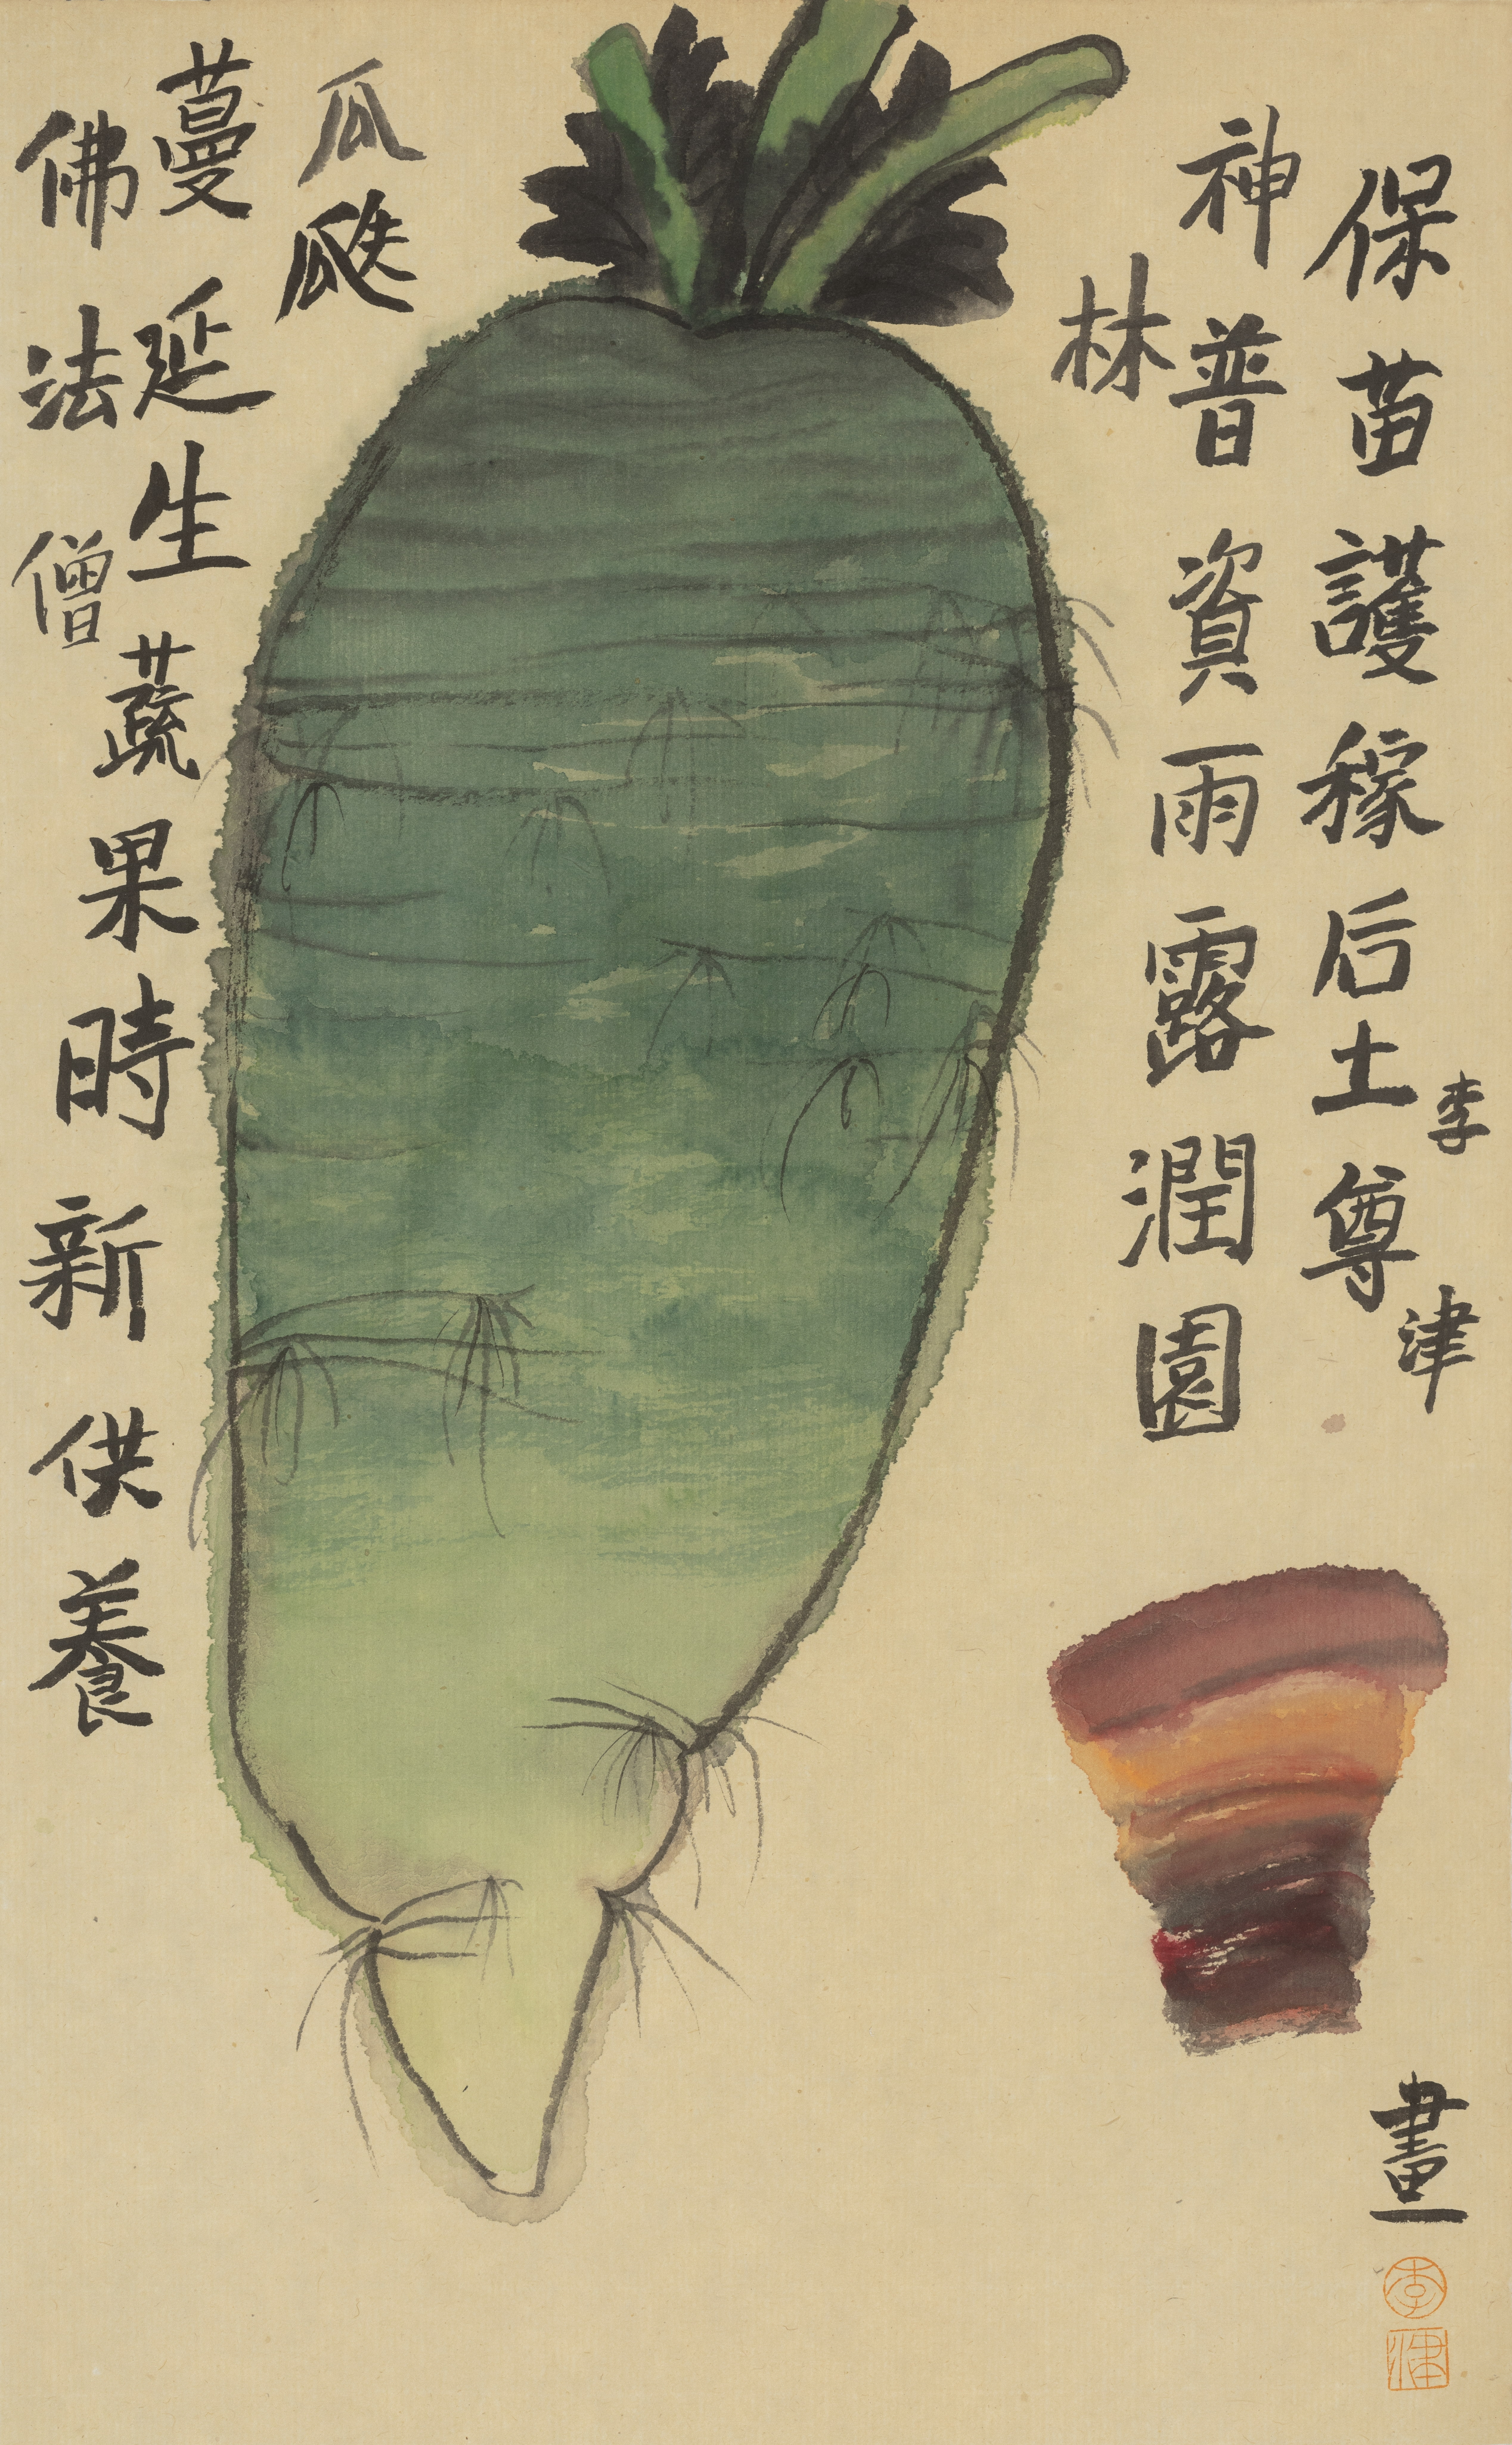 保苗護稼后土尊
神普資雨露潤園
林
瓜瓞
蔓延生蔬果時新供養
佛法僧
李津
畫
李
津